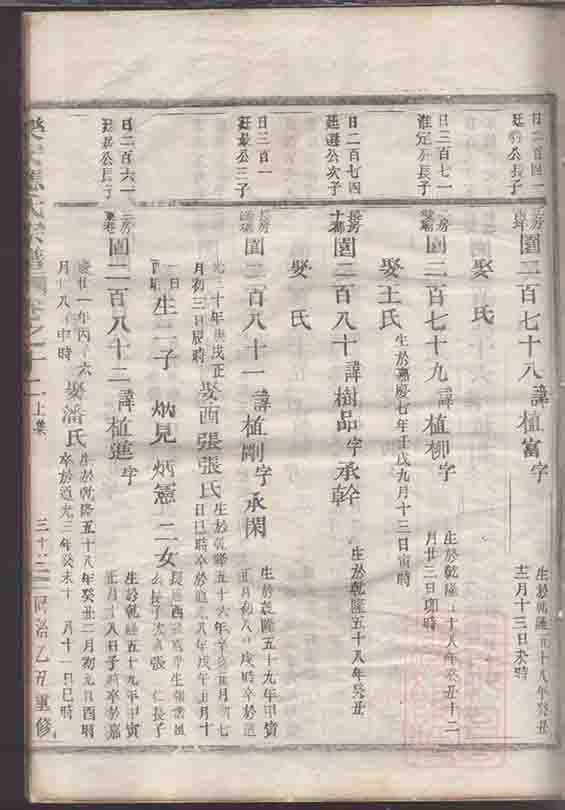 日二百四一
公長子
園二百七十八諱植富字
生於乾隆五十八年癸丑
十二月十三日未時
娶 氏
日二百七一
淮定公長子
園二百七十九諱植柳字
生於乾隆五十八年癸丑十二
月廿三日卯時
娶王氏
生於嘉慶七年壬戌九月十三日寅時
日二百七四
廷選公次子
長房
園二百八十諱樹品字承幹
生於乾隆五十八年癸丑
娶 氏
日三百一
公三子
長房
園二百八十一諱植剛字承閑
生於乾隆五十九年甲寅
正月初八日戌時卒於道
光三十年庚戌正
月初三日辰時
娶酉張張氏
生於乾隆五十六年辛亥正月初七
日巳時卒於道光八年戊午五月十
一日
生二子 炳見 炳憲 二女
長適酉
仁長子
日二百六一
公長子
二房
園二百八十二諱植進字
生於乾隆五十九年甲寅
正月十八日子時卒於嘉
慶廿一年丙子六
月十八日申時
娶潘氏
生於乾隆五十八年癸丑二月初九日酉時
卒於道光三年癸未十一月十一日巳時
氏宗譜 卷之十二上集 三十三 同治乙丑重修